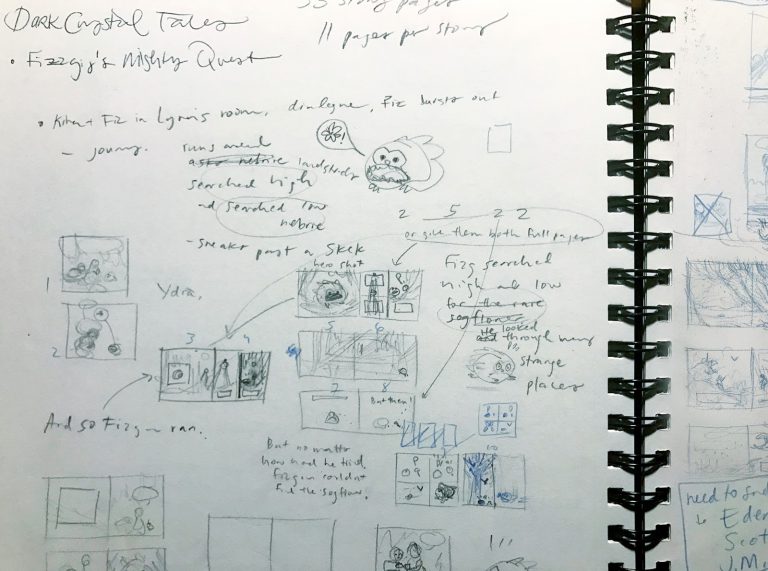 Dark Crystal Tales
55 story pages
11 pages per story
• Fizzgig's Mighty Quest
• Kira + Fiz in Lynn's room, dialogue, Fiz bursts out
- journey.
runs
landslides
searched high
and searched low
nebrie
- sneaks past a Skek
hero shot
2 5 2 2
or give them both full pages
1
Ydra,
2
3 4
Fizg searched
high and low
for the rare
sogflower
He looked
through many
strange
places
5 6
7 8
But then!
And so Fizgig ran.
But no matter
how hard he tried
Fizgig couldn't
find the sogflower.
10
need to find
Eden
Scot
J.M.